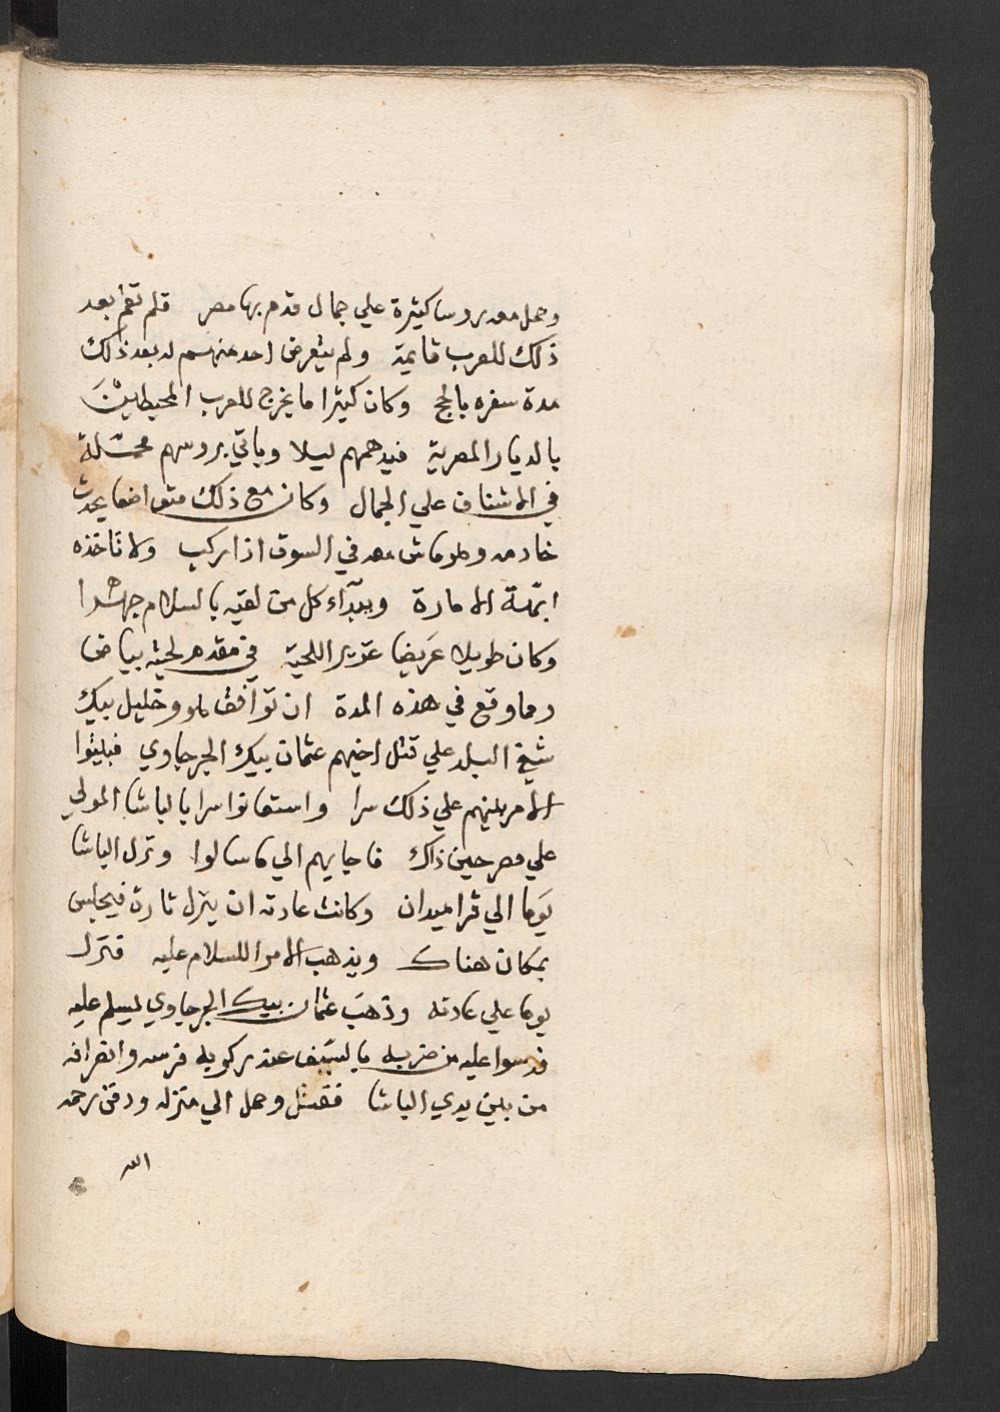 وحمل معه روسا كثيرة علي جمال قدم بها مصر فلم تقم بعد
ذلك للعرب قايمة ولم يتعرض احد منهم له بعد ذلك
مدة سفره بالحج وكان كثيرا ما يخرج للعرب المحيطين
بالديار المصرية فيدهمهم ليلا وياتي بروسهم محمّلة
في الاشناف علي الجمال وكان مع ذلك متواضعا يحدث
خادمه وهو ماش معه في السوق اذا ركب ولا تاخذه
ابّهة الامارة ويبدأء كل من لقيه بالسلام جهرا
وكان طويلا عَريضا غزير اللحية في مقدم لحيته بياض
ومما وقع في هذه المدة ان توافق هو وخليل بيك
شيخ البلد علي قتل اخيهم عثمان بيك الجرجاوي فبيتوا
الامر بينهم علي ذلك سرا واستعانوا سرا بالباشا المولي
علي مصر حين ذاك فاجابهم الي ما سالوا ونزل الباشا
يَوما الي قراميدان وكانت عادته ان ينزل تارة فيجلس
بمكان هناك ويذهب الامرا للسلام عليه فنزل
يوما علي عادته وذهب عثمان بيك الجرجاوي ليسلم عليه
فدسوا عليه من ضربه بالسيف عند ركوبه فرسه وانصرافه
من بين يدي الباشا فقتل وحمل الي منزله ودفن رحمه
الله